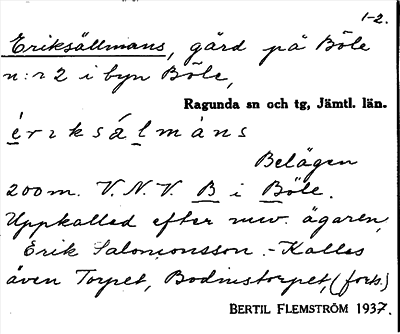 1-2.
Eriksällmans, gård på Böle
n:r 2 i byn Böle,
Ragunda sn och tg, Jämtl. län.
é r ı k s á l m à n s
Belägen
200 m. V.N.V. B i Böle.
Uppkallad efter nuv. ägaren,
Erik Salomonsson. - Kallas
även Torpet, Bodmstorpet, (forts.)
BERTIL FLEMSTRÖM 1937.